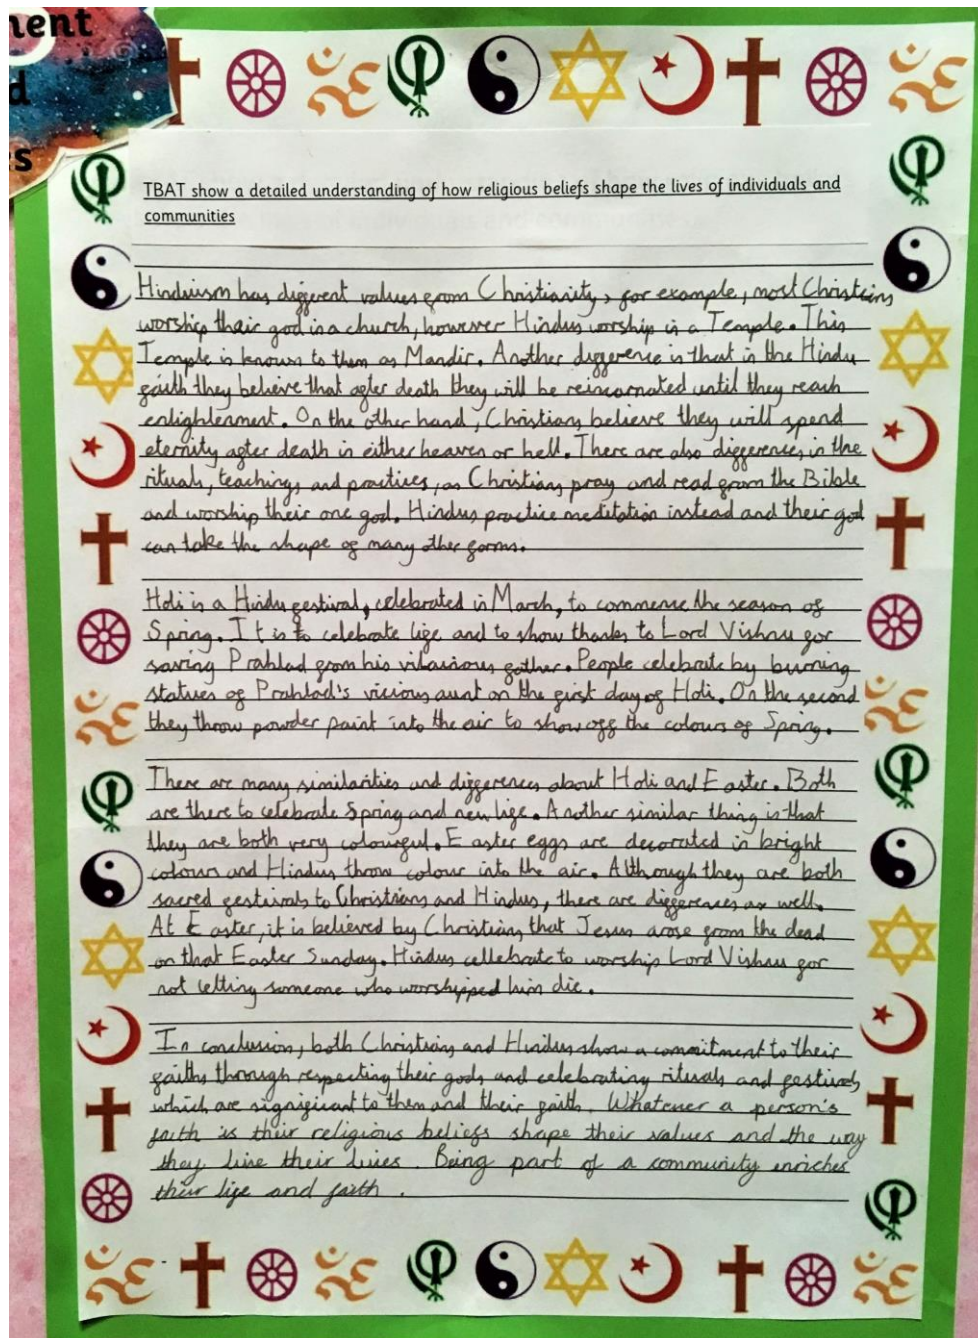 ment
d
s
TBAT show a detailed understanding of how religious beliefs shape the lives of individuals and
communities
Hinduism has different values from Christianity, for example, most Christians
worship their god in a church, however Hindus worship in a Temple. This
Temple is known to them as Mandir. Another difference is that in the Hindu
faith they believe that after death they will be reincarnated until they reach
enlightenment. On the other hand, Christians believe they will spend
eternity after death in either heaven or hell. There are also differences in the
rituals, teachings and practises, as Christians pray and read from the Bible
and worship their one god. Hindus practice meditation instead and their god
can take the shape of many other forms.
Holi is a Hindu festival, celebrated in March, to commence the season of
Spring. It is to celebrate life and to show thanks to Lord Vishnu for
saving Prahlad from his vilainious father. People celebrate by burning
statues of Prahlad's vicious aunt on the first day of Holi. On the second
they throw powder paint into the air to show off the colours of Spring.
There are many similarities and differences about Holi and Easter. Both
are there to celebrate Spring and new life. Another similar thing is that
they are both very colourful. Easter eggs are decorated in bright
colours and Hindus throw colour into the air. Although they are both
sacred festivals to Christians and Hindus, there are differences as well.
At Easter, it is believed by Christians that Jesus arose from the dead
on that Easter Sunday. Hindus cellebrate to worship Lord Vishnu for
not letting someone who worshipped him die.
In conclusion, both Christians and Hindus show a commitment to their
faiths through respecting their gods and celebrating rituals and festivals
which are significant to them and their faith. Whatever a person's
faith is their religious beliefs shape their values and the way
they live their lives. Being part of a community enriches
their life and faith.